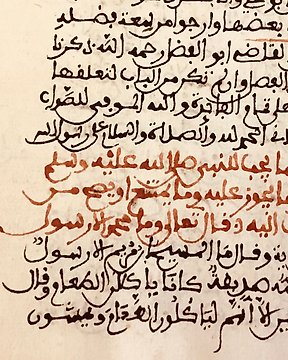 بعضها وارجوا من بفضله
القاضي ابو الفضل رحمه الله ذكرنا
الفصل وان من الباب لتعلقها
على والله الموفق للصواب
الحمد لله والصلاة والسلام على رسول الله
ما يجب للنبي صلى الله عليه وسلم
ما يجوز عليه وما يمتنع او يصح من
اليه قال تعالى وما محمد الا رسول
ية وقال ما المسيح ابن مريم الا رسول
صديقة كانا ياكلان الطعام وقال
ين الا انهم لياكلون الطعام ويمشون